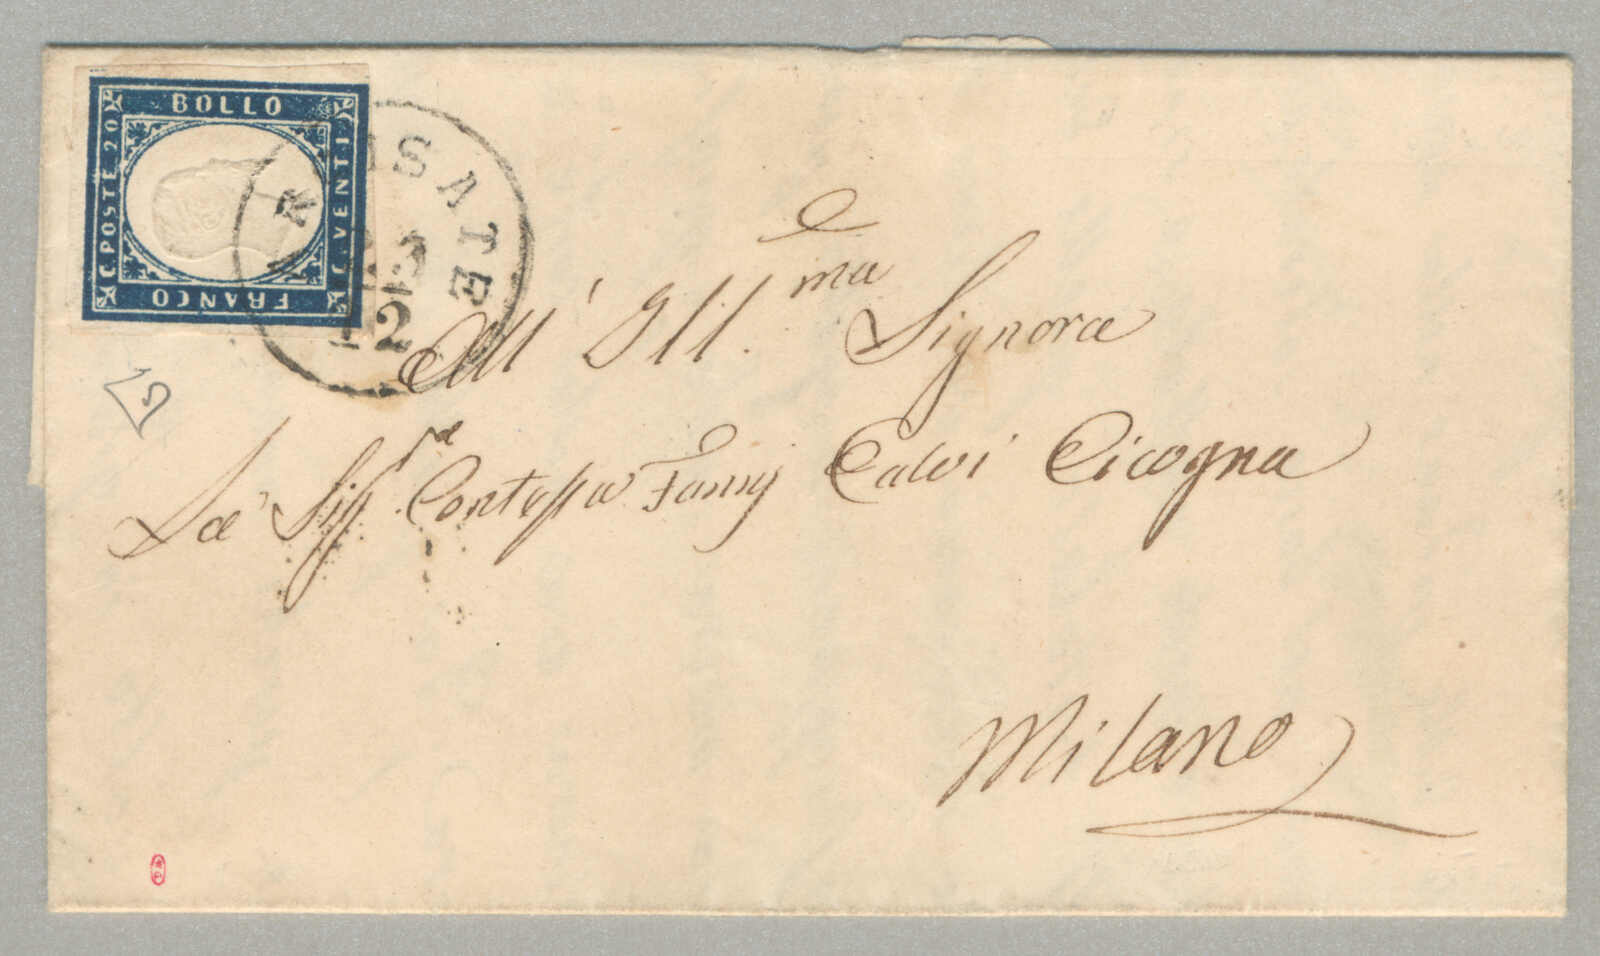 BOLLO
C. POSTE 20
C. VENTI
FRANCO
ROSATE
12
All' Ill.ma Signora
La Sig.ra Contessa Fanny Calvi Cicogna
Milano